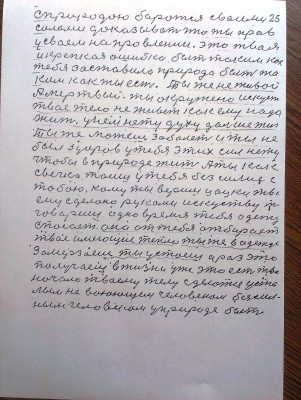 с природою бароться своими 25
силами доказывать што ты прав
усваем направлении. Это твоя
и крепкая ошибка быт таким как
тебя заставила природа быт та
ким как ты есть. Ты же не живой
а мертвый. ты окружено искуст
твое тело не живет как ему нада
жит. унем нету духу дальше жит
Ты же можеш заболет и ты не
был здоров утебя этих сил нету
чтобы вприроде жит. Аты как
свечка таиш утебя без силиц с
тобою. Кому ты вериш
ему сделано руками искуству
говариш одно время тебя одежд
спасает. она от тебя отбирает
твое имеющие тепло ты же водежде
Замерзаеш ты устаеш а раз это
получаеш вжизни уже это ест тво
начало твоему телу сделатся уста
лым не воюющем человеком
ным человеком уприроде быт